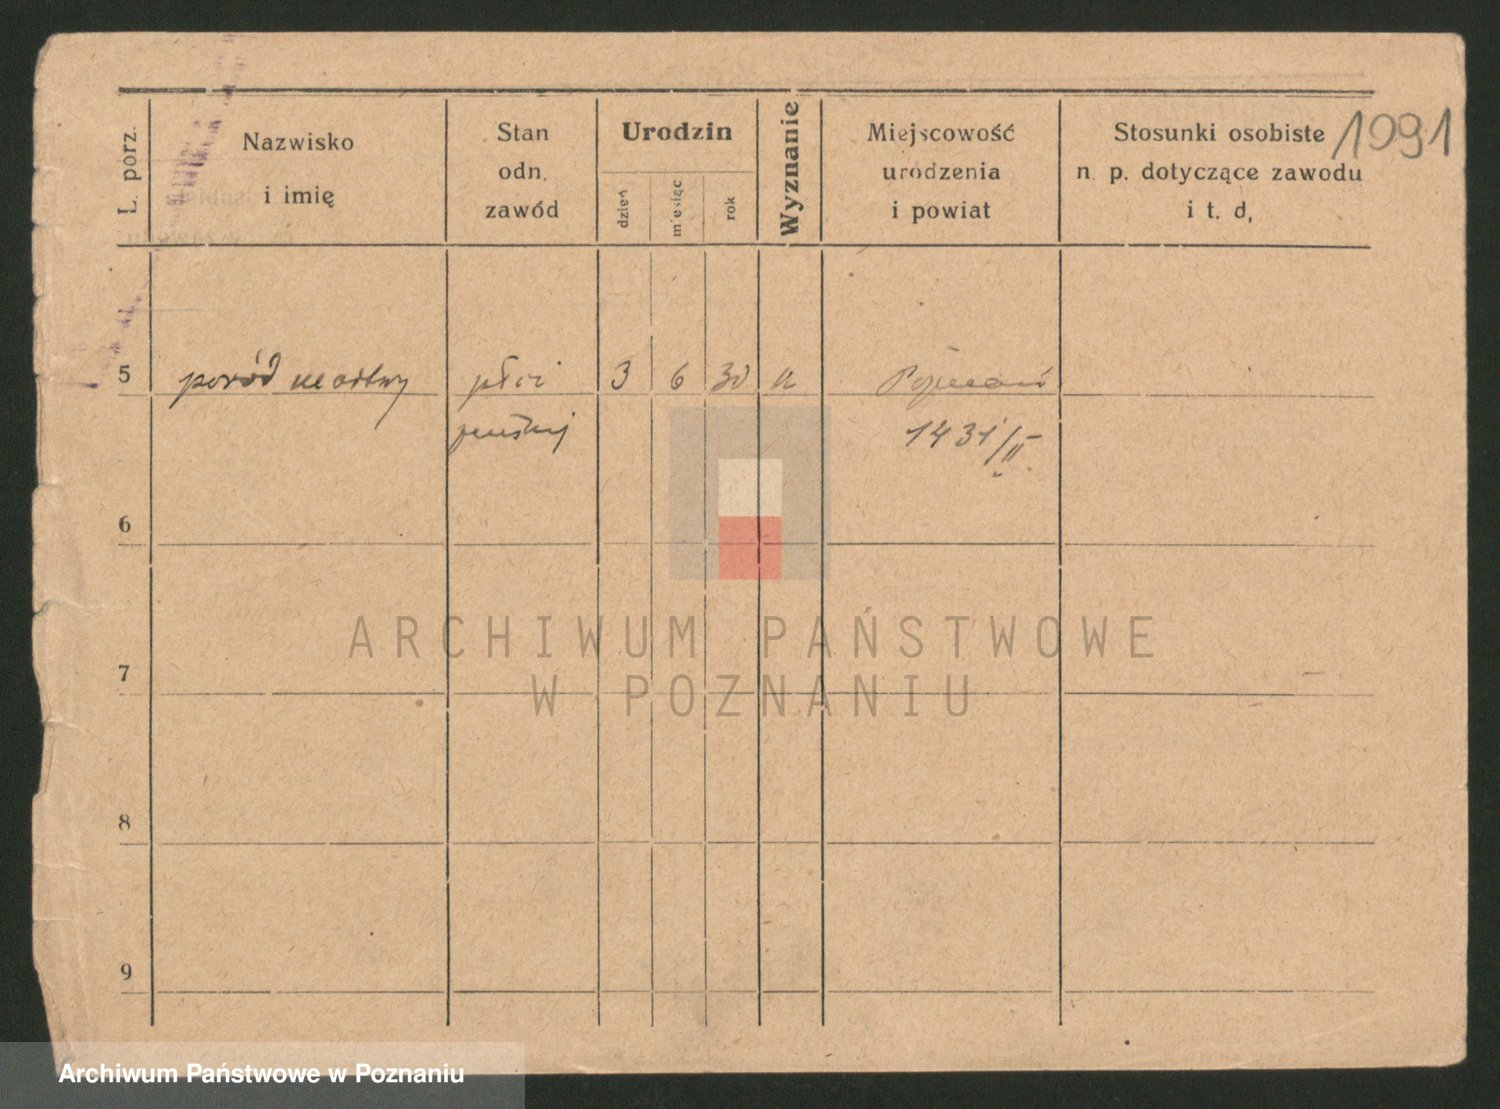 L. porz.
Nazwisko
i imię
Stan
odn.
zawód
Urodzin
dzień
miesiąc
rok
Wyznanie
Miejscowość
urodzenia
i powiat
Stosunki osobiste
n. p. dotyczące zawodu
i t. d,
1091
5 poród martwy płci 3 6 30 k Poznań
męskiej 1431/II
6
7
8
9
ARCHIWUM PAŃSTWOWE
W POZNANIU
Archiwum Państwowe w Poznaniu